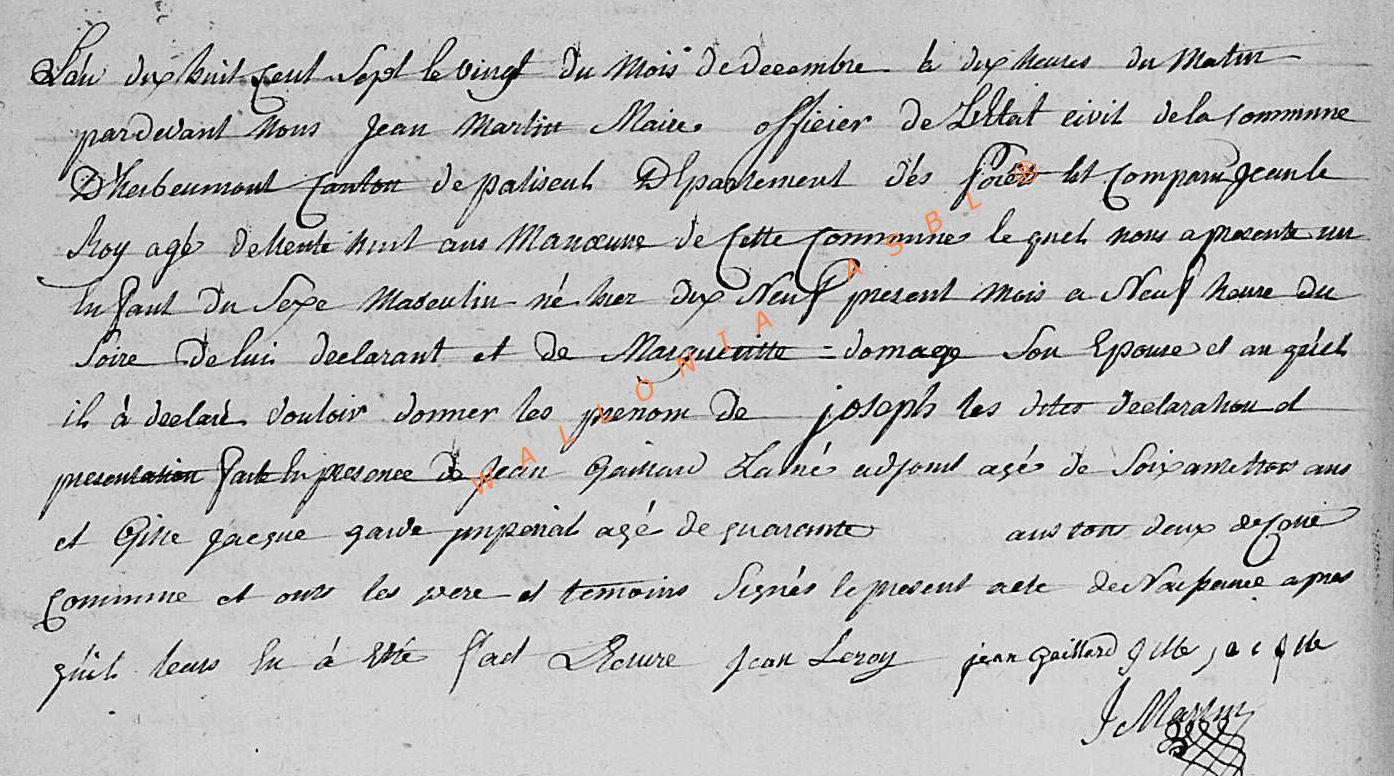 L'an dix huit Cent Sept le vingt du Mois de decembre à dix heures du Matin
pardevant Nous Jean Martin Maire officier de L'Etat civil dela Commune
D'herbeumont Canton de paliseul Département dés forêts Est Comparu Jean le
Roy agé de trente huit ans Manœuvre de Cette Commune lequel nous a presenté un
Enfant du Sexe Masculin né hier dix Neuf present mois a Neuf heure du
Soire de lui declarant et de Margueritte = domage Son Epouse et au quel
il à declaré vouloir donner les prenom de joseph les dites declaration et
presentation faite En presence de Jean Gaillard L'ainé adjoint agé de Soixante trois ans
et Gille Jacque garde imperial agé de quarante ans tous deux de Cette
Commune et onts les pere et temoins Signés le present acte de Naissance apres
qu'il leurs En à Etté fait Lecture Jean Leroy jean gaillard gille jacque
J Martin
WALLONIA ASBL